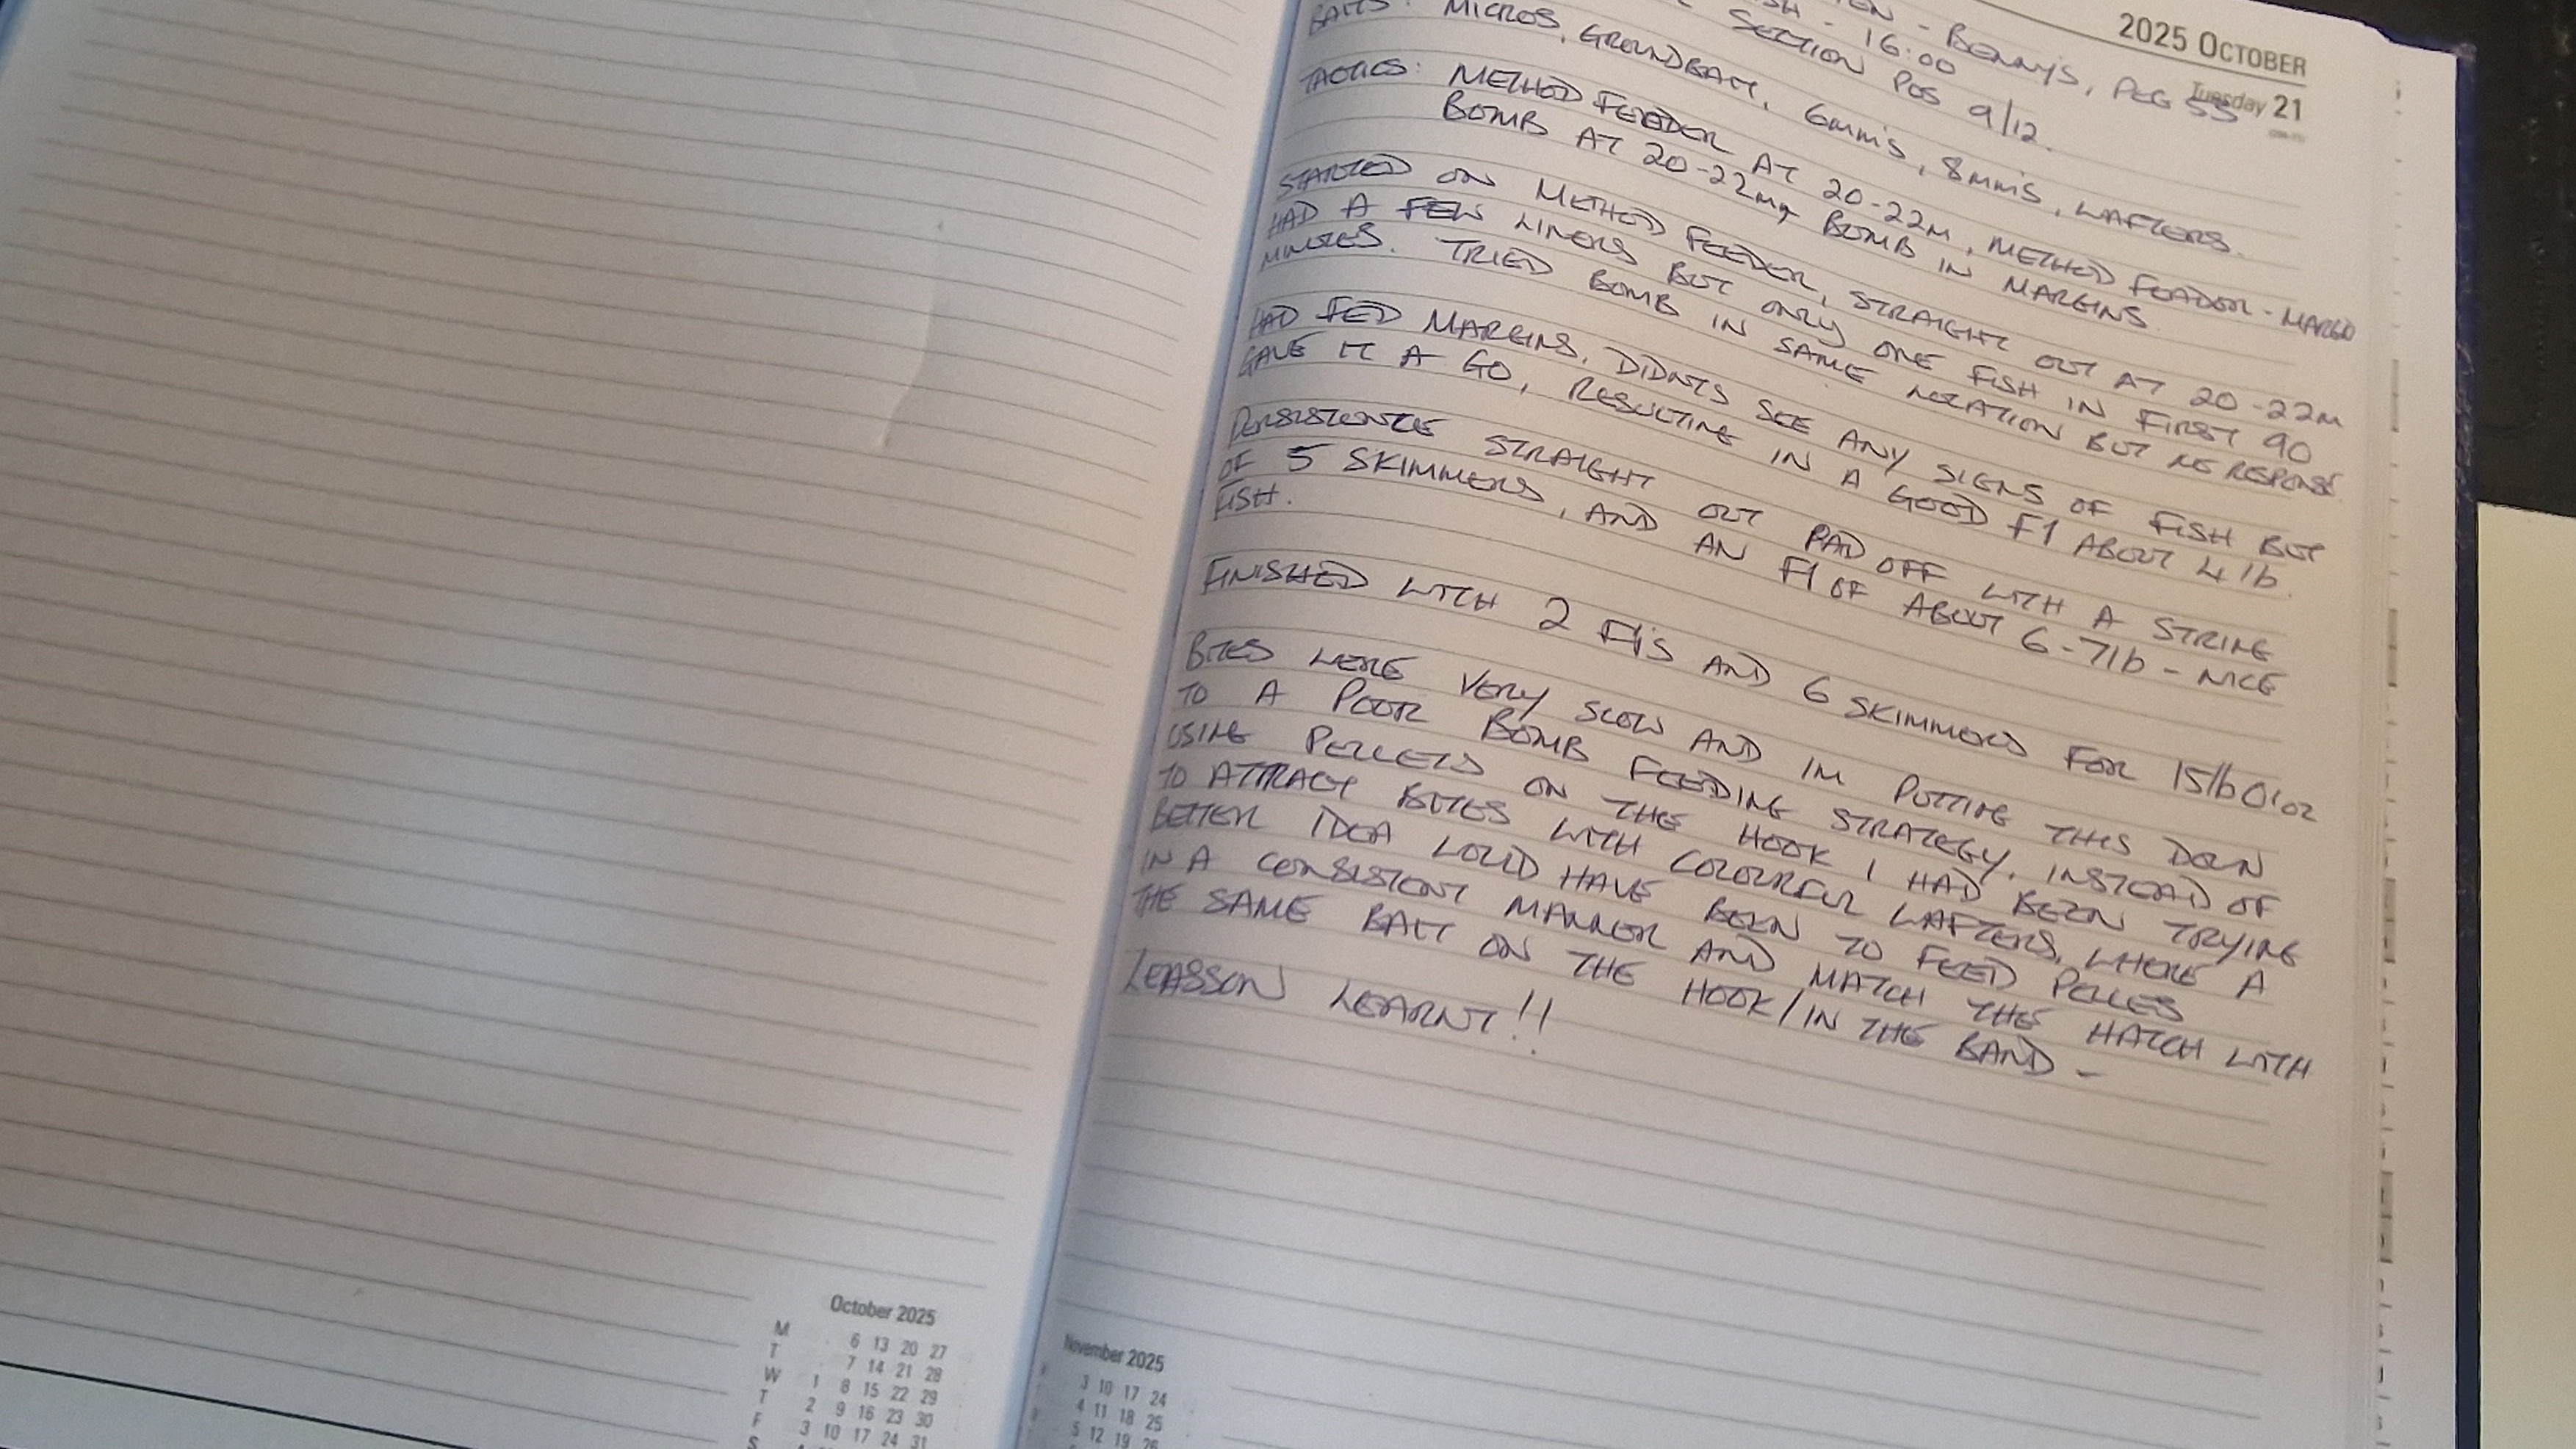 2025 OCTOBER
Tuesday 21
- BENNY'S, PEG 55
- 16:00
SECTION POS 9/12.
BAITS: MICROS, GROUNDBAIT, 6mm's, 8mm's, WAFTERS.
TACTICS: METHOD FEEDER AT 20-22m, METHOD FEEDER - MARGIN
BOMB AT 20-22m, BOMB IN MARGINS
STARTED ON METHOD FEEDER, STRAIGHT OUT AT 20-22m
HAD A FEW LINERS BUT ONLY ONE FISH IN FIRST 90
MINUTES. TRIED BOMB IN SAME LOCATION BUT NO RESPONSE
HAD FED MARGINS, DIDNTS SEE ANY SIGNS OF FISH BUT
GAVE IT A GO, RESULTING IN A GOOD F1 ABOUT 4lb.
PERSISTENCE STRAIGHT OUT PAID OFF WITH A STRING
OF 5 SKIMMERS, AND AN F1 OF ABOUT 6-7lb - NICE
FISH.
FINISHED WITH 2 F1's AND 6 SKIMMERS FOR 15lb 01oz
BITES WERE VERY SLOW AND IM PUTTING THIS DOWN
TO A POOR BOMB FEEDING STRATEGY. INSTEAD OF
USING PELLETS ON THE HOOK I HAD BEEN TRYING
TO ATTRACT BITES WITH COLOURFUL WAFTERS, WHERE A
BETTER IDEA WOULD HAVE BEEN TO FEED PELLES
IN A CONSISTENT MANNER AND MATCH THE HATCH WITH
THE SAME BAIT ON THE HOOK/IN THE BAND -
LEASSON LEARNT!!
October 2025
M 6 13 20 27
T 7 14 21 28
W 1 8 15 22 29
T 2 9 16 23 30
F 3 10 17 24 31
S
November 2025
3 10 17 24
4 11 18 25
5 12 19 26